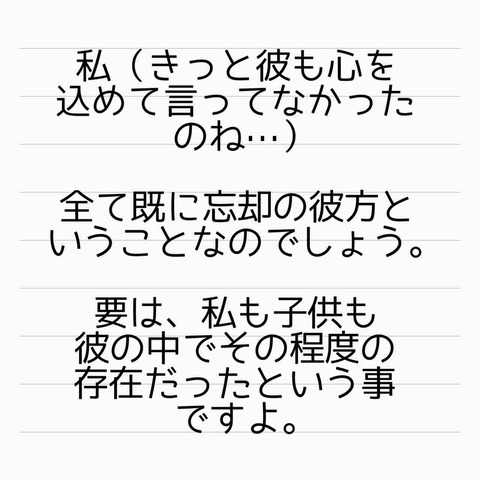 私（きっと彼も心を
込めて言ってなかった
のね…）
全て既に忘却の彼方と
いうことなのでしょう。
要は、私も子供も
彼の中でその程度の
存在だったという事
ですよ。